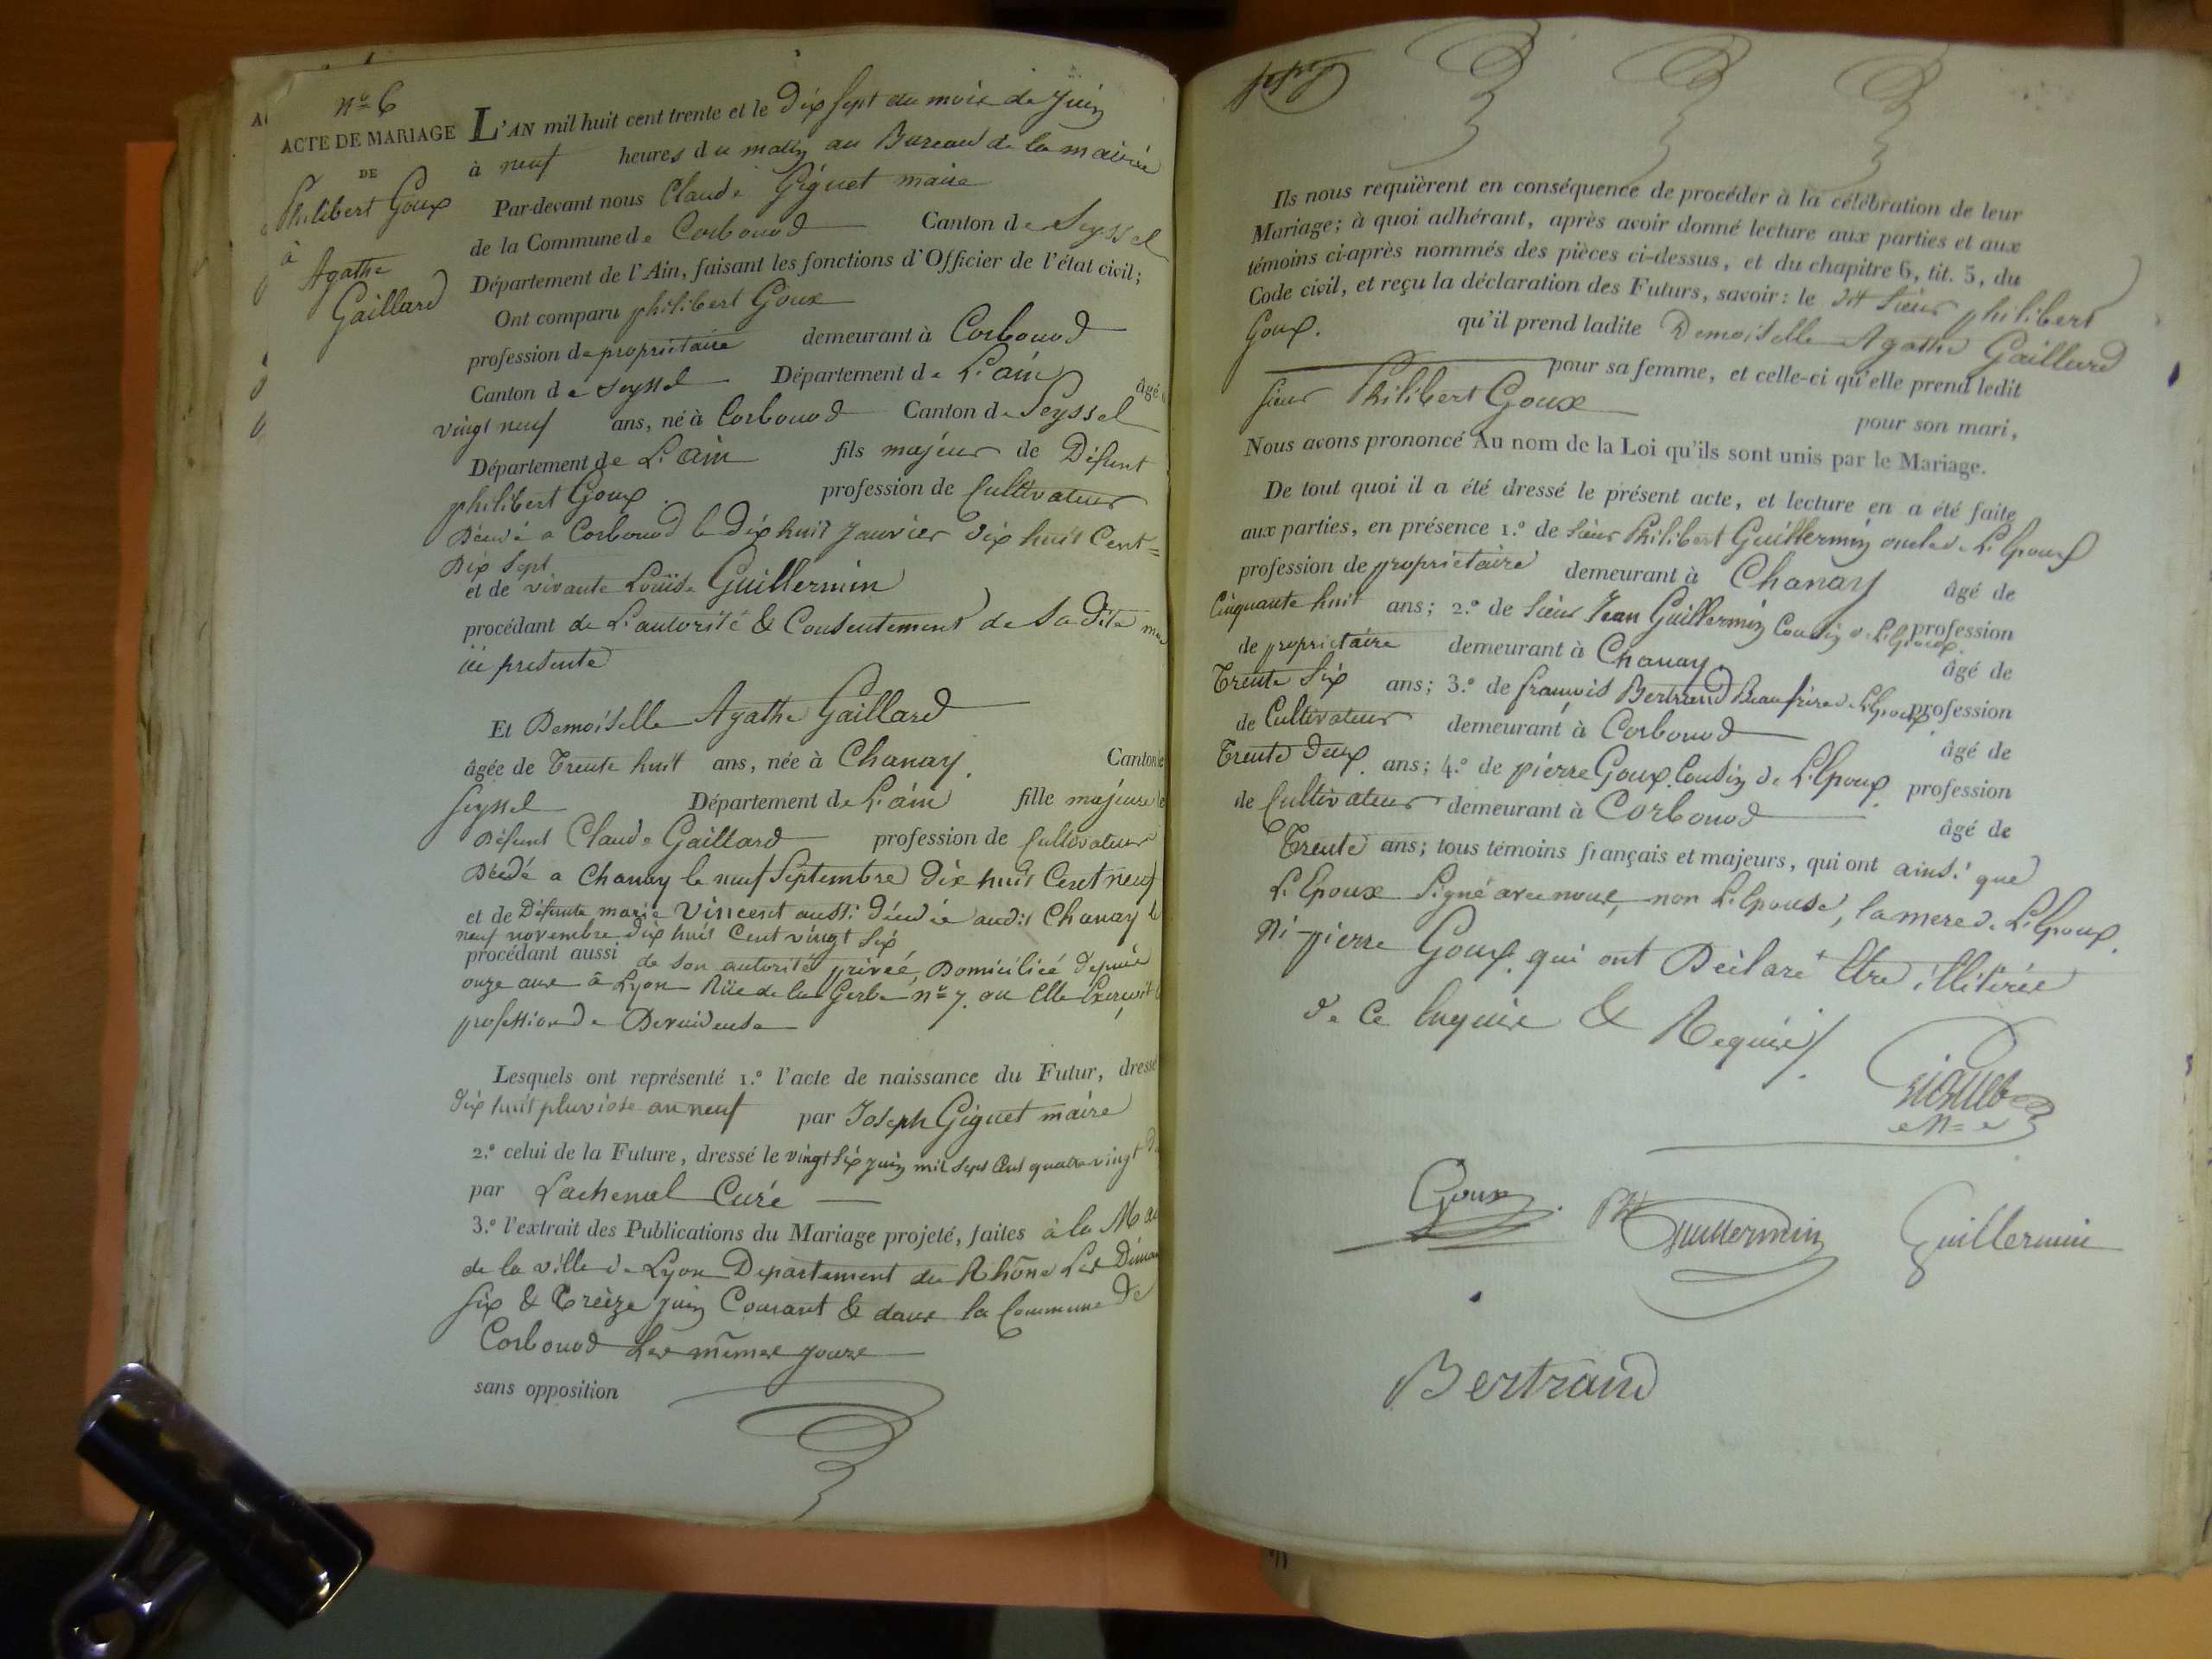 nº 6
ACTE DE MARIAGE
DE
Philibert Goux
à
Agathe
Gaillard
L'AN mil huit cent trente et le Dix sept du mois de juin
à neuf heures du matin au Bureau de la mairie
Par-devant nous Claude Giguet maire
de la Commune de Corbonod Canton de Seyssel
Département de l'Ain, faisant les fonctions d'Officier de l'état civil;
Ont comparu philibert Goux
profession de propriétaire demeurant à Corbonod
Canton de Seyssel Département de L'ain âgé
vingt neuf ans, né à Corbonod Canton de Seyssel
Département de L'ain fils majeur de Défunt
philibert Goux profession de Cultivateur
Décédé a Corbonod le dix huit Janvier dix huit Cent=
Dix Sept
et de vivante Louise Guillermin
procédant de L'autorité & Consentement de sa Dite
ici presente
Et Demoiselle Agathe Gaillard
âgée de Trente huit ans, née à Chanay Canton
Seyssel Département de L'ain fille majeure
Défunt Claude Gaillard profession de Cultivateur
Décédé a Chanay le neuf Septembre Dix huit Cent neuf
et de Défunte marie Vincent aussi décédée audit Chanay le
neuf novembre dix huit Cent vingt Six
procédant aussi de son autorité privée, Domiciliée depuis
onze ans à Lyon Rüe de la Gerbe nº 7. ou Elle Exerçoit
profession de Devideuse
Lesquels ont représenté 1.º l'acte de naissance du Futur, dressé
dix huit pluviose an neuf par Joseph Giguet maire
2.º celui de la Future, dressé le vingt Six juin mil sept Cent quatrevingt
par Lachenal Curé
3.º l'extrait des Publications du Mariage projeté, faites à la
de la ville de Lyon Departement du Rhône Les
Six & Treize juin Courant & dans la Commune de
Corbonod Les mêmes jours
sans opposition
Ils nous requièrent en conséquence de procéder à la célébration de leur
Mariage; à quoi adhérant, après avoir donné lecture aux parties et aux
témoins ci-après nommés des pièces ci-dessus, et du chapitre 6, tit. 5, du
Code civil, et reçu la déclaration des Futurs, savoir: le dit Sieur philibert
Goux. qu'il prend ladite Demoiselle Agathe Gaillard
pour sa femme, et celle-ci qu'elle prend ledit
Sieur Philibert Goux pour son mari,
Nous avons prononcé Au nom de la Loi qu'ils sont unis par le Mariage.
De tout quoi il a été dressé le présent acte, et lecture en a été faite
aux parties, en présence 1.º de Sieur Philibert Guillermin oncle de L'Epoux
profession de propriétaire demeurant à Chanay âgé de
Cinquante huit ans; 2.º de Sieur Jean Guillermin Cousin de L'Epoux profession
de propriétaire demeurant à Chanay âgé de
Trente Six ans; 3.º de françois Bertrand Beaufrère de L'Epoux profession
de Cultivateur demeurant à Corbonod âgé de
Trente Deux ans; 4.º de pierre Goux Cousin de L'Epoux profession
de Cultivateur demeurant à Corbonod âgé de
Trente ans; tous témoins français et majeurs, qui ont ainsi que
L'Epoux Signé avec nous, non L'Epouse, la mere de L'Epoux
Ni pierre Goux qui ont Déclaré Etre illitérés
de Ce Enquis & Requis/.
Giguet
Goux
Ph Guillermin
Guillermin
Bertrand